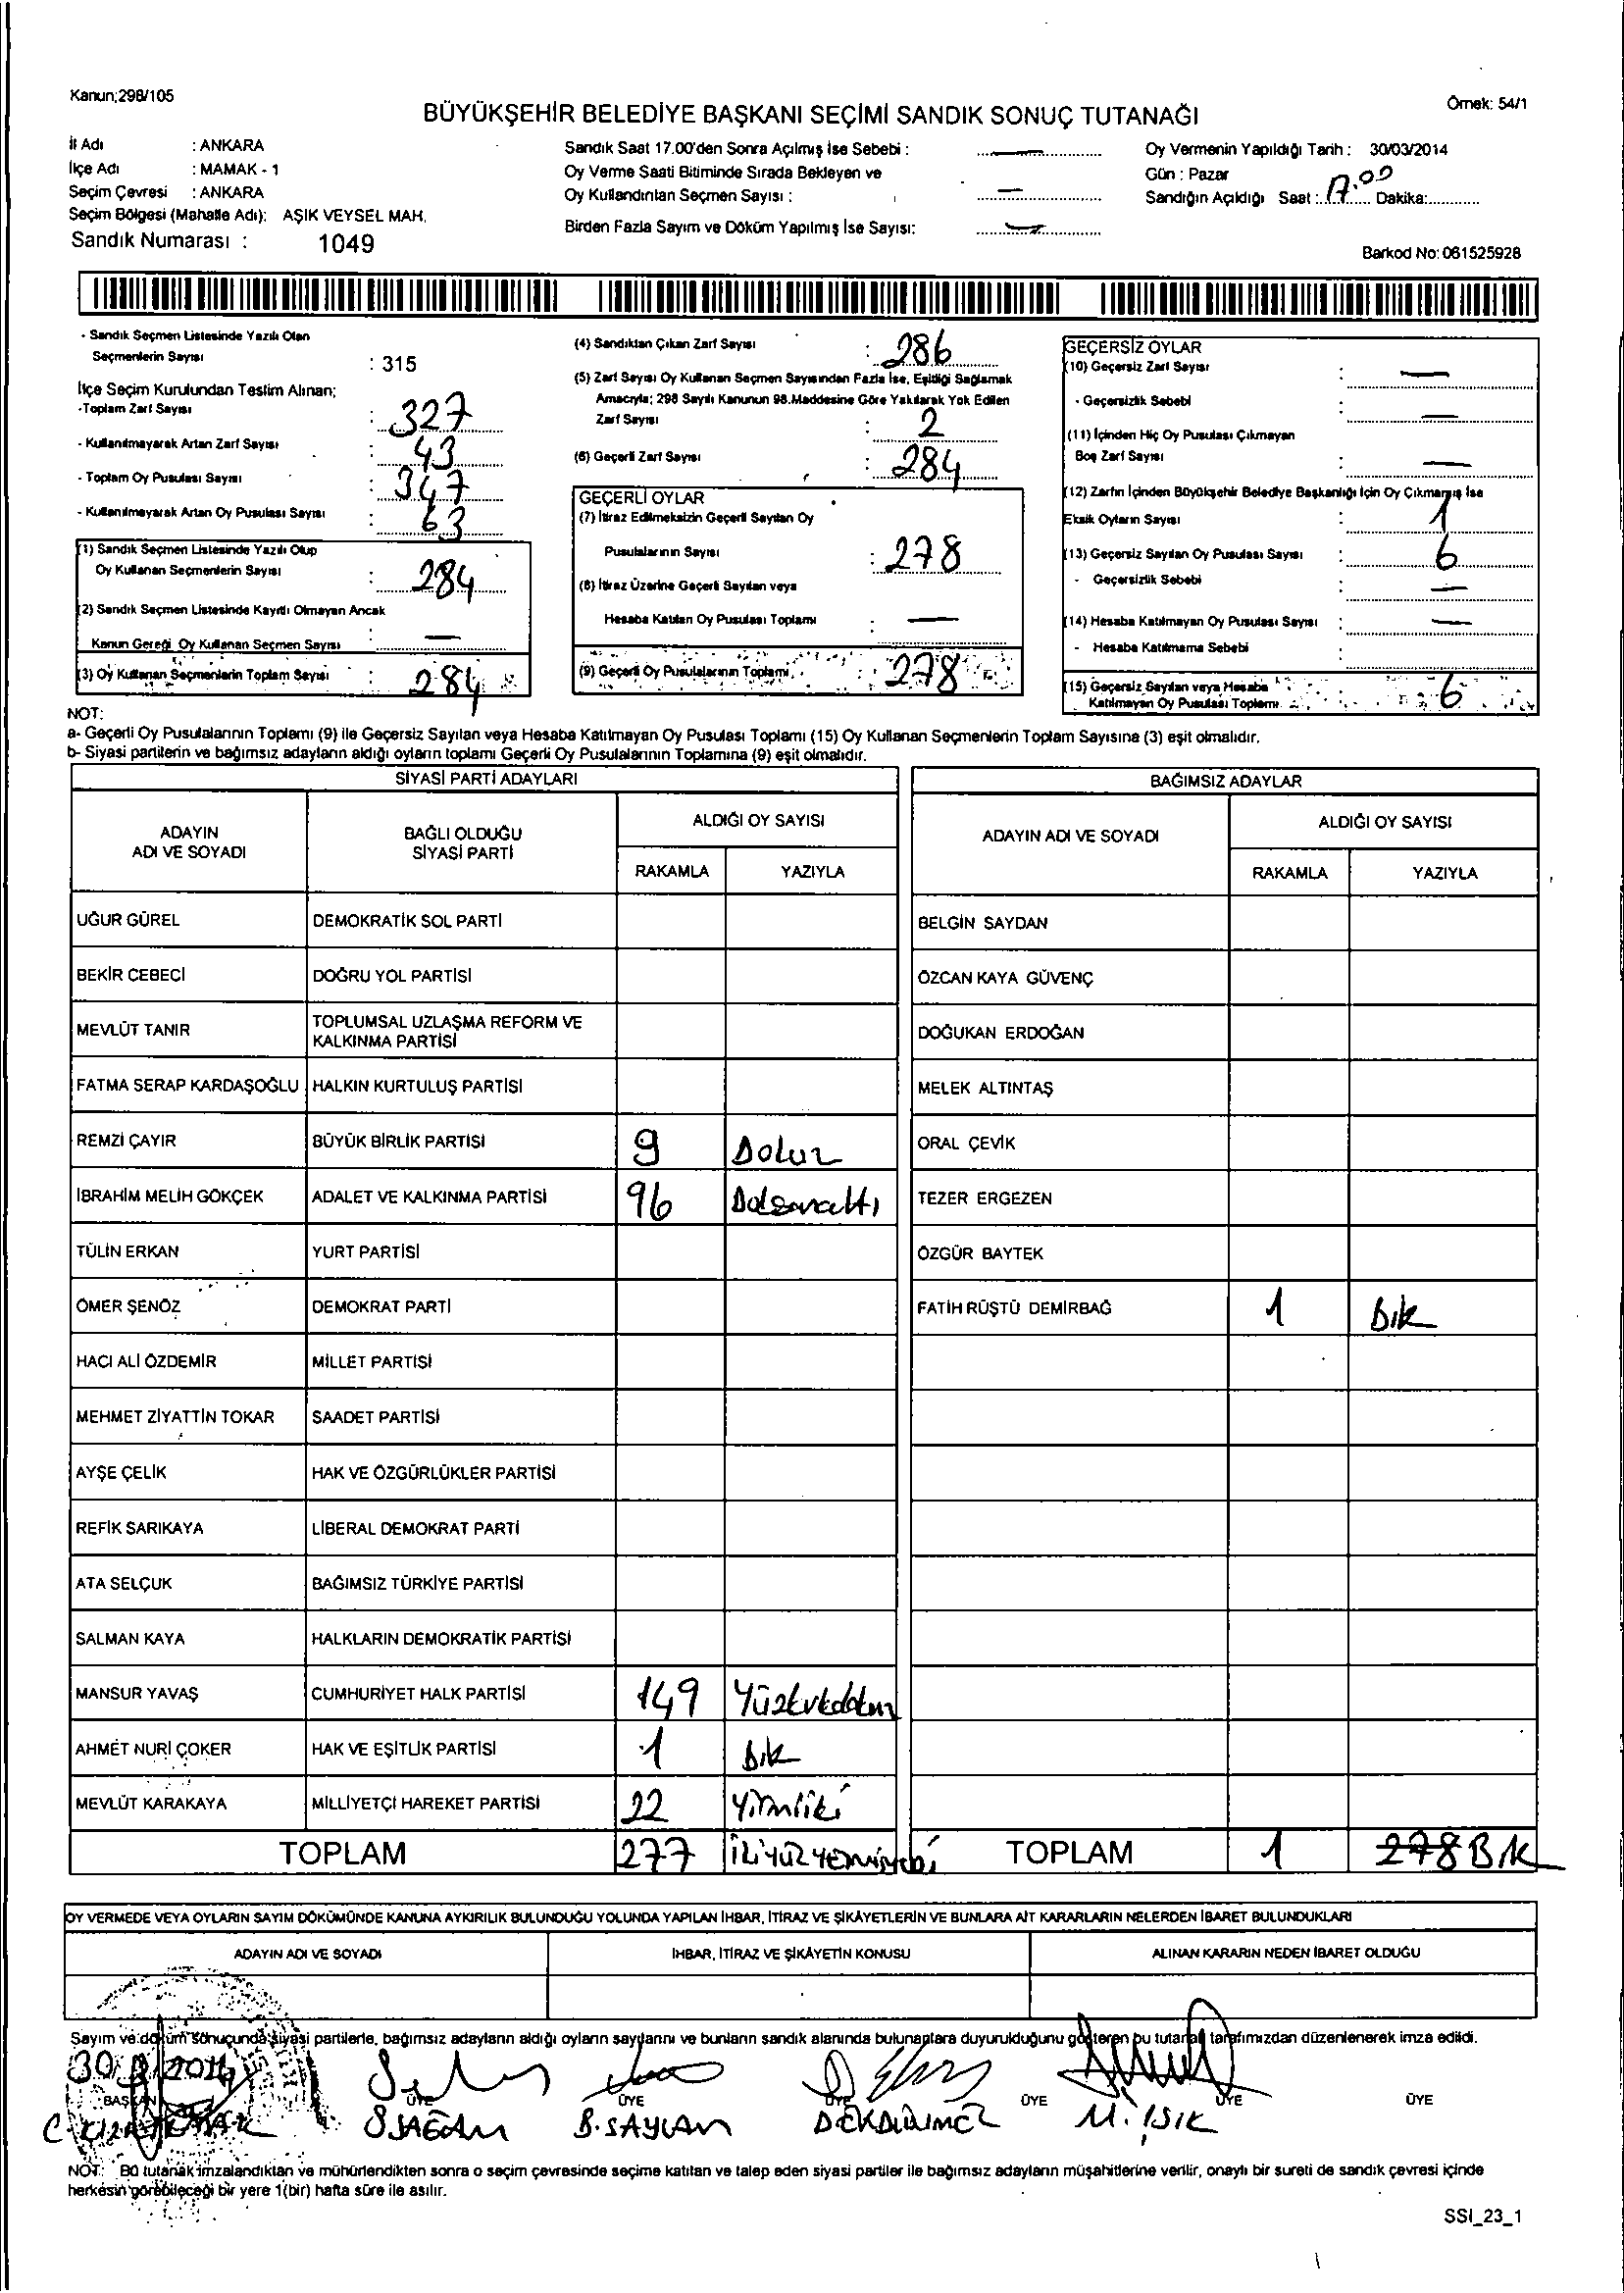 Kanun;298/105
Örnek: 54/1
BÜYÜKŞEHİR BELEDİYE BAŞKANI SEÇİMİ SANDIK SONUÇ TUTANAĞI
İl Adı : ANKARA
İlçe Adı : MAMAK - 1
Seçim Çevresi : ANKARA
Seçim Bölgesi (Mahalle Adı): AŞIK VEYSEL MAH.
Sandık Numarası : 1049
Sandık Saat 17.00'den Sonra Açılmış İse Sebebi :
Oy Verme Saati Bitiminde Sırada Bekleyen ve
Oy Kullandırılan Seçmen Sayısı :
Birden Fazla Sayım ve Döküm Yapılmış İse Sayısı:
Oy Vermenin Yapıldığı Tarih : 30/03/2014
Gün : Pazar
Sandığın Açıldığı Saat : 17.00 Dakika:
Barkod No: 061525928
- Sandık Seçmen Listesinde Yazılı Olan
Seçmenlerin Sayısı : 315
İlçe Seçim Kurulundan Teslim Alınan;
-Toplam Zarf Sayısı : 327
- Kullanılmayarak Artan Zarf Sayısı : 43
- Toplam Oy Pusulası Sayısı : 347
- Kullanılmayarak Artan Oy Pusulası Sayısı : 63
(1) Sandık Seçmen Listesinde Yazılı Olup
Oy Kullanan Seçmenlerin Sayısı : 284
(2) Sandık Seçmen Listesinde Kayıtlı Olmayan Ancak
Kanun Gereği Oy Kullanan Seçmen Sayısı : —
(3) Oy Kullanan Seçmenlerin Toplam Sayısı : 284
(4) Sandıktan Çıkan Zarf Sayısı : 286
(5) Zarf Sayısı Oy Kullanan Seçmen Sayısından Fazla İse, Eşitliği Sağlamak
Amacıyla; 298 Sayılı Kanunun 98.Maddesine Göre Yakılarak Yok Edilen
Zarf Sayısı : 2
(6) Geçerli Zarf Sayısı : 284
GEÇERLİ OYLAR
(7) İtiraz Edilmeksizin Geçerli Sayılan Oy
Pusulalarının Sayısı : 278
(8) İtiraz Üzerine Geçerli Sayılan veya
Hesaba Katılan Oy Pusulası Toplamı : —
(9) Geçerli Oy Pusulalarının Toplamı : 278
GEÇERSİZ OYLAR
(10) Geçersiz Zarf Sayısı : —
- Geçersizlik Sebebi : —
(11) İçinden Hiç Oy Pusulası Çıkmayan
Boş Zarf Sayısı : —
(12) Zarfın İçinden Büyükşehir Belediye Başkanlığı İçin Oy Çıkmamış İse
Eksik Oyların Sayısı : 1
(13) Geçersiz Sayılan Oy Pusulası Sayısı : 6
- Geçersizlik Sebebi : —
(14) Hesaba Katılmayan Oy Pusulası Sayısı : —
- Hesaba Katılmama Sebebi :
(15) Geçersiz Sayılan veya Hesaba
Katılmayan Oy Pusulası Toplamı : 6
NOT:
a- Geçerli Oy Pusulalarının Toplamı (9) ile Geçersiz Sayılan veya Hesaba Katılmayan Oy Pusulası Toplamı (15) Oy Kullanan Seçmenlerin Toplam Sayısına (3) eşit olmalıdır.
b- Siyasi partilerin ve bağımsız adayların aldığı oyların toplamı Geçerli Oy Pusulalarının Toplamına (9) eşit olmalıdır.
SİYASİ PARTİ ADAYLARI
ADAYIN ADI VE SOYADI BAĞLI OLDUĞU SİYASİ PARTİ ALDIĞI OY SAYISI
RAKAMLA YAZIYLA
UĞUR GÜREL DEMOKRATİK SOL PARTİ
BEKİR CEBECİ DOĞRU YOL PARTİSİ
MEVLÜT TANIR TOPLUMSAL UZLAŞMA REFORM VE KALKINMA PARTİSİ
FATMA SERAP KARDAŞOĞLU HALKIN KURTULUŞ PARTİSİ
REMZİ ÇAYIR BÜYÜK BİRLİK PARTİSİ 9
İBRAHİM MELİH GÖKÇEK ADALET VE KALKINMA PARTİSİ 96
TÜLİN ERKAN YURT PARTİSİ
ÖMER ŞENÖZ DEMOKRAT PARTİ
HACI ALİ ÖZDEMİR MİLLET PARTİSİ
MEHMET ZİYATTİN TOKAR SAADET PARTİSİ
AYŞE ÇELİK HAK VE ÖZGÜRLÜKLER PARTİSİ
REFİK SARIKAYA LİBERAL DEMOKRAT PARTİ
ATA SELÇUK BAĞIMSIZ TÜRKİYE PARTİSİ
SALMAN KAYA HALKLARIN DEMOKRATİK PARTİSİ
MANSUR YAVAŞ CUMHURİYET HALK PARTİSİ 149
AHMET NURİ ÇOKER HAK VE EŞİTLİK PARTİSİ 1
MEVLÜT KARAKAYA MİLLİYETÇİ HAREKET PARTİSİ 22
TOPLAM 277
BAĞIMSIZ ADAYLAR
ADAYIN ADI VE SOYADI ALDIĞI OY SAYISI
RAKAMLA YAZIYLA
BELGİN SAYDAN
ÖZCAN KAYA GÜVENÇ
DOĞUKAN ERDOĞAN
MELEK ALTINTAŞ
ORAL ÇEVİK
TEZER ERGEZEN
ÖZGÜR BAYTEK
FATİH RÜŞTÜ DEMİRBAĞ 1
TOPLAM 1 278
OY VERMEDE VEYA OYLARIN SAYIM DÖKÜMÜNDE KANUNA AYKIRILIK BULUNDUĞU YOLUNDA YAPILAN İHBAR, İTİRAZ VE ŞİKÂYETLERİN VE BUNLARA AİT KARARLARIN NELERDEN İBARET BULUNDUKLARI
ADAYIN ADI VE SOYADI İHBAR, İTİRAZ VE ŞİKÂYETİN KONUSU ALINAN KARARIN NEDEN İBARET OLDUĞU
Sayım ve döküm sonucunda siyasi partilerle, bağımsız adayların aldığı oyların sayılarını ve bunların sandık alanında bulunanlara duyurulduğunu gösteren bu tutanak tarafımızdan düzenlenerek imza edildi.
BAŞKAN ÜYE ÜYE ÜYE ÜYE ÜYE ÜYE
B. SAYLAN M. IŞIK
NOT: Bu tutanak imzalandıktan ve mühürlendikten sonra o seçim çevresinde seçime katılan ve talep eden siyasi partiler ile bağımsız adayların müşahitlerine verilir, onaylı bir sureti de sandık çevresi içinde
herkesin görebileceği bir yere 1(bir) hafta süre ile asılır.
SSI_23_1